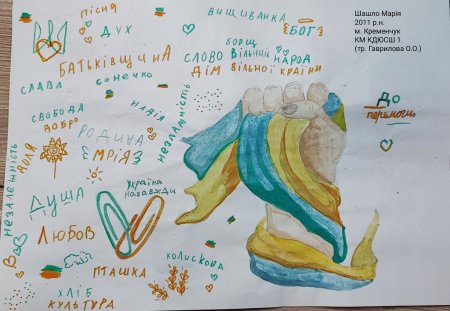 Пісня
ДУХ
БАТЬКІВЩИНА
Сонечко
СЛАВА
СВОБОДА
ДОБРО
НАДІЯ
РОДИНА
ДОЛЯ
МРІЯ
НЕЗЛАМНІСТЬ
НЕЗАЛЕЖНІСТЬ
ВИШИВАНКА
БОГ
БОРЩ
СЛОВО ВІЛЬНИЙ НАРОД
ДІМ ВІЛЬНОЇ КРАЇНИ
ДУША
Україна
назавжди
ЛЮБОВ
ПТАШКА
КОЛИСКОВА
ХЛІБ
КУЛЬТУРА
Шашло Марія
2011 р.н.
м. Кременчук
КМ КДЮСШ 1
(тр. Гаврилова О.О.)
До
перемоги